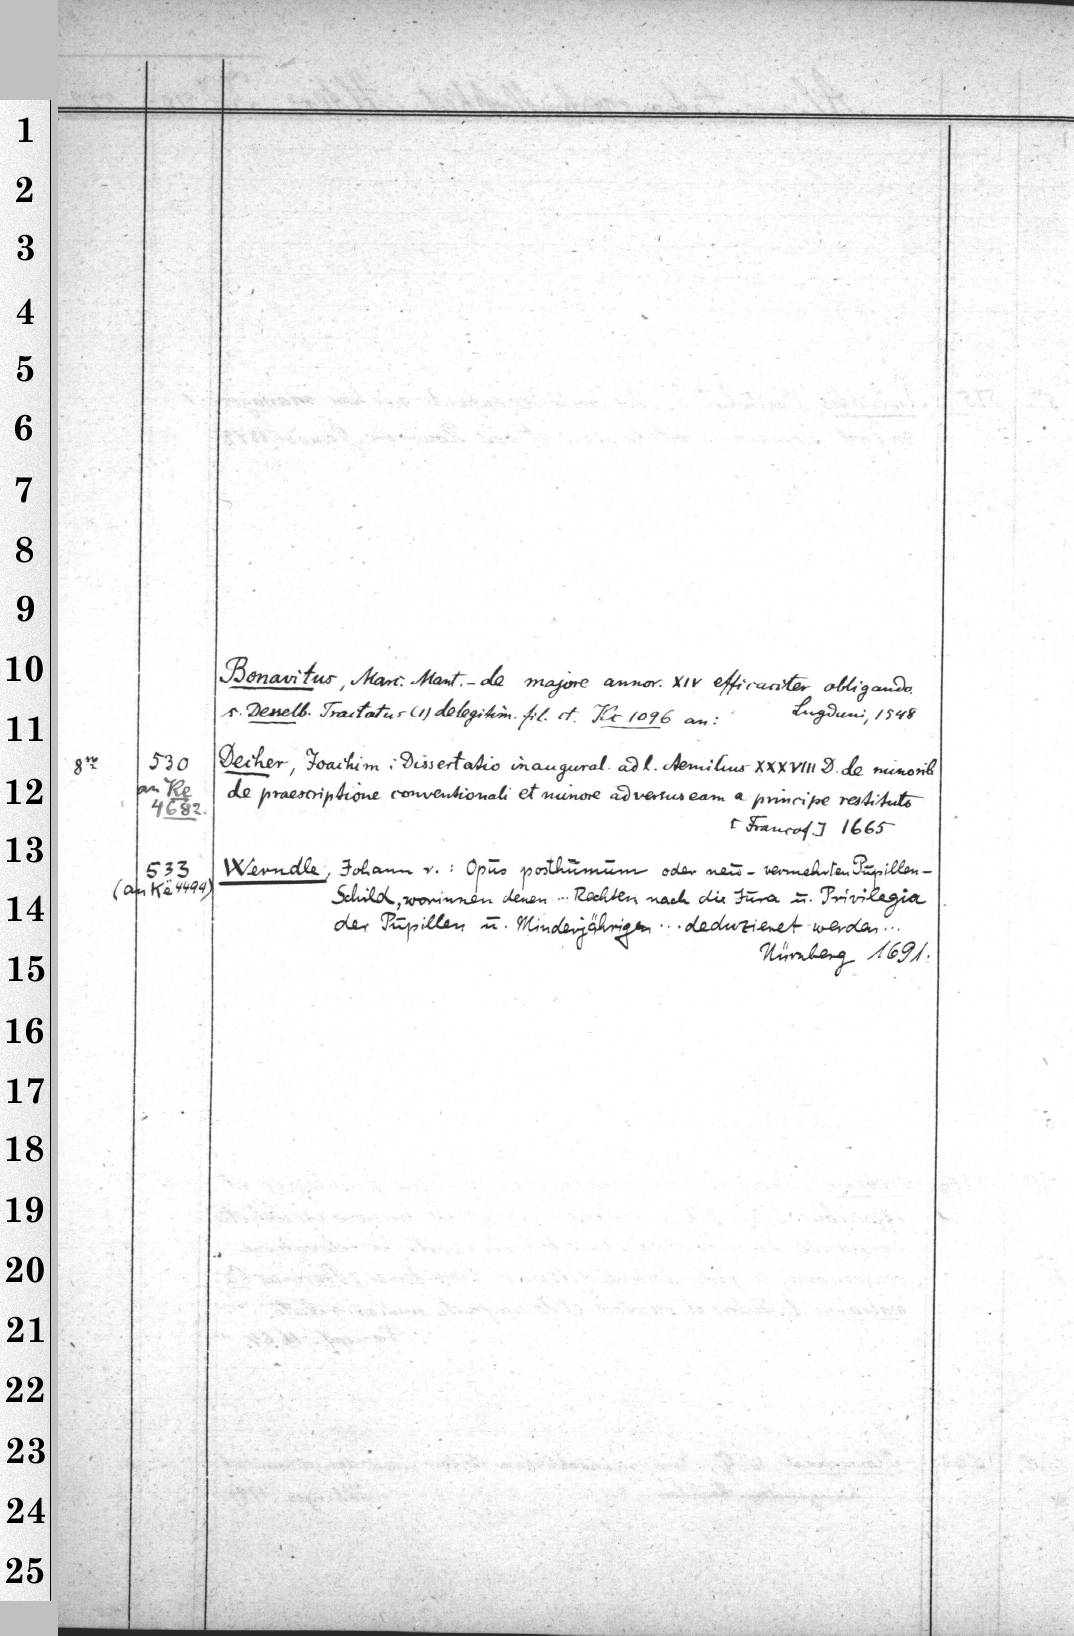 1
2
3
4
5
6
7
8
9
10
11
12
13
14
15
16
17
18
19
20
21
22
23
24
25
Bonavitus, Marc. Mant. - de majore annor. XIV efficaciter obligando.
s. Desselb. Tractatus (1) de legitim. fil. et. Kc 1096 an: Lugduni, 1548
8vo 530 Decher, Joachim : Dissertatio inaugural. ad l. Aemilius XXXVIII D. de minorib
an Ke de praescriptione conventionali et minore adversus eam a principe restituto
4682. [Francof.] 1665
533 Werndle, Johann v. : Opus posthumum oder neu-vermehrten Pupillen-
(an Kä 4494) Schild, worinnen denen ... Rechten nach die Jura u. Privilegia
der Pupillen u. Minderjährigen ... deduzieret werden ...
Nürnberg 1691.